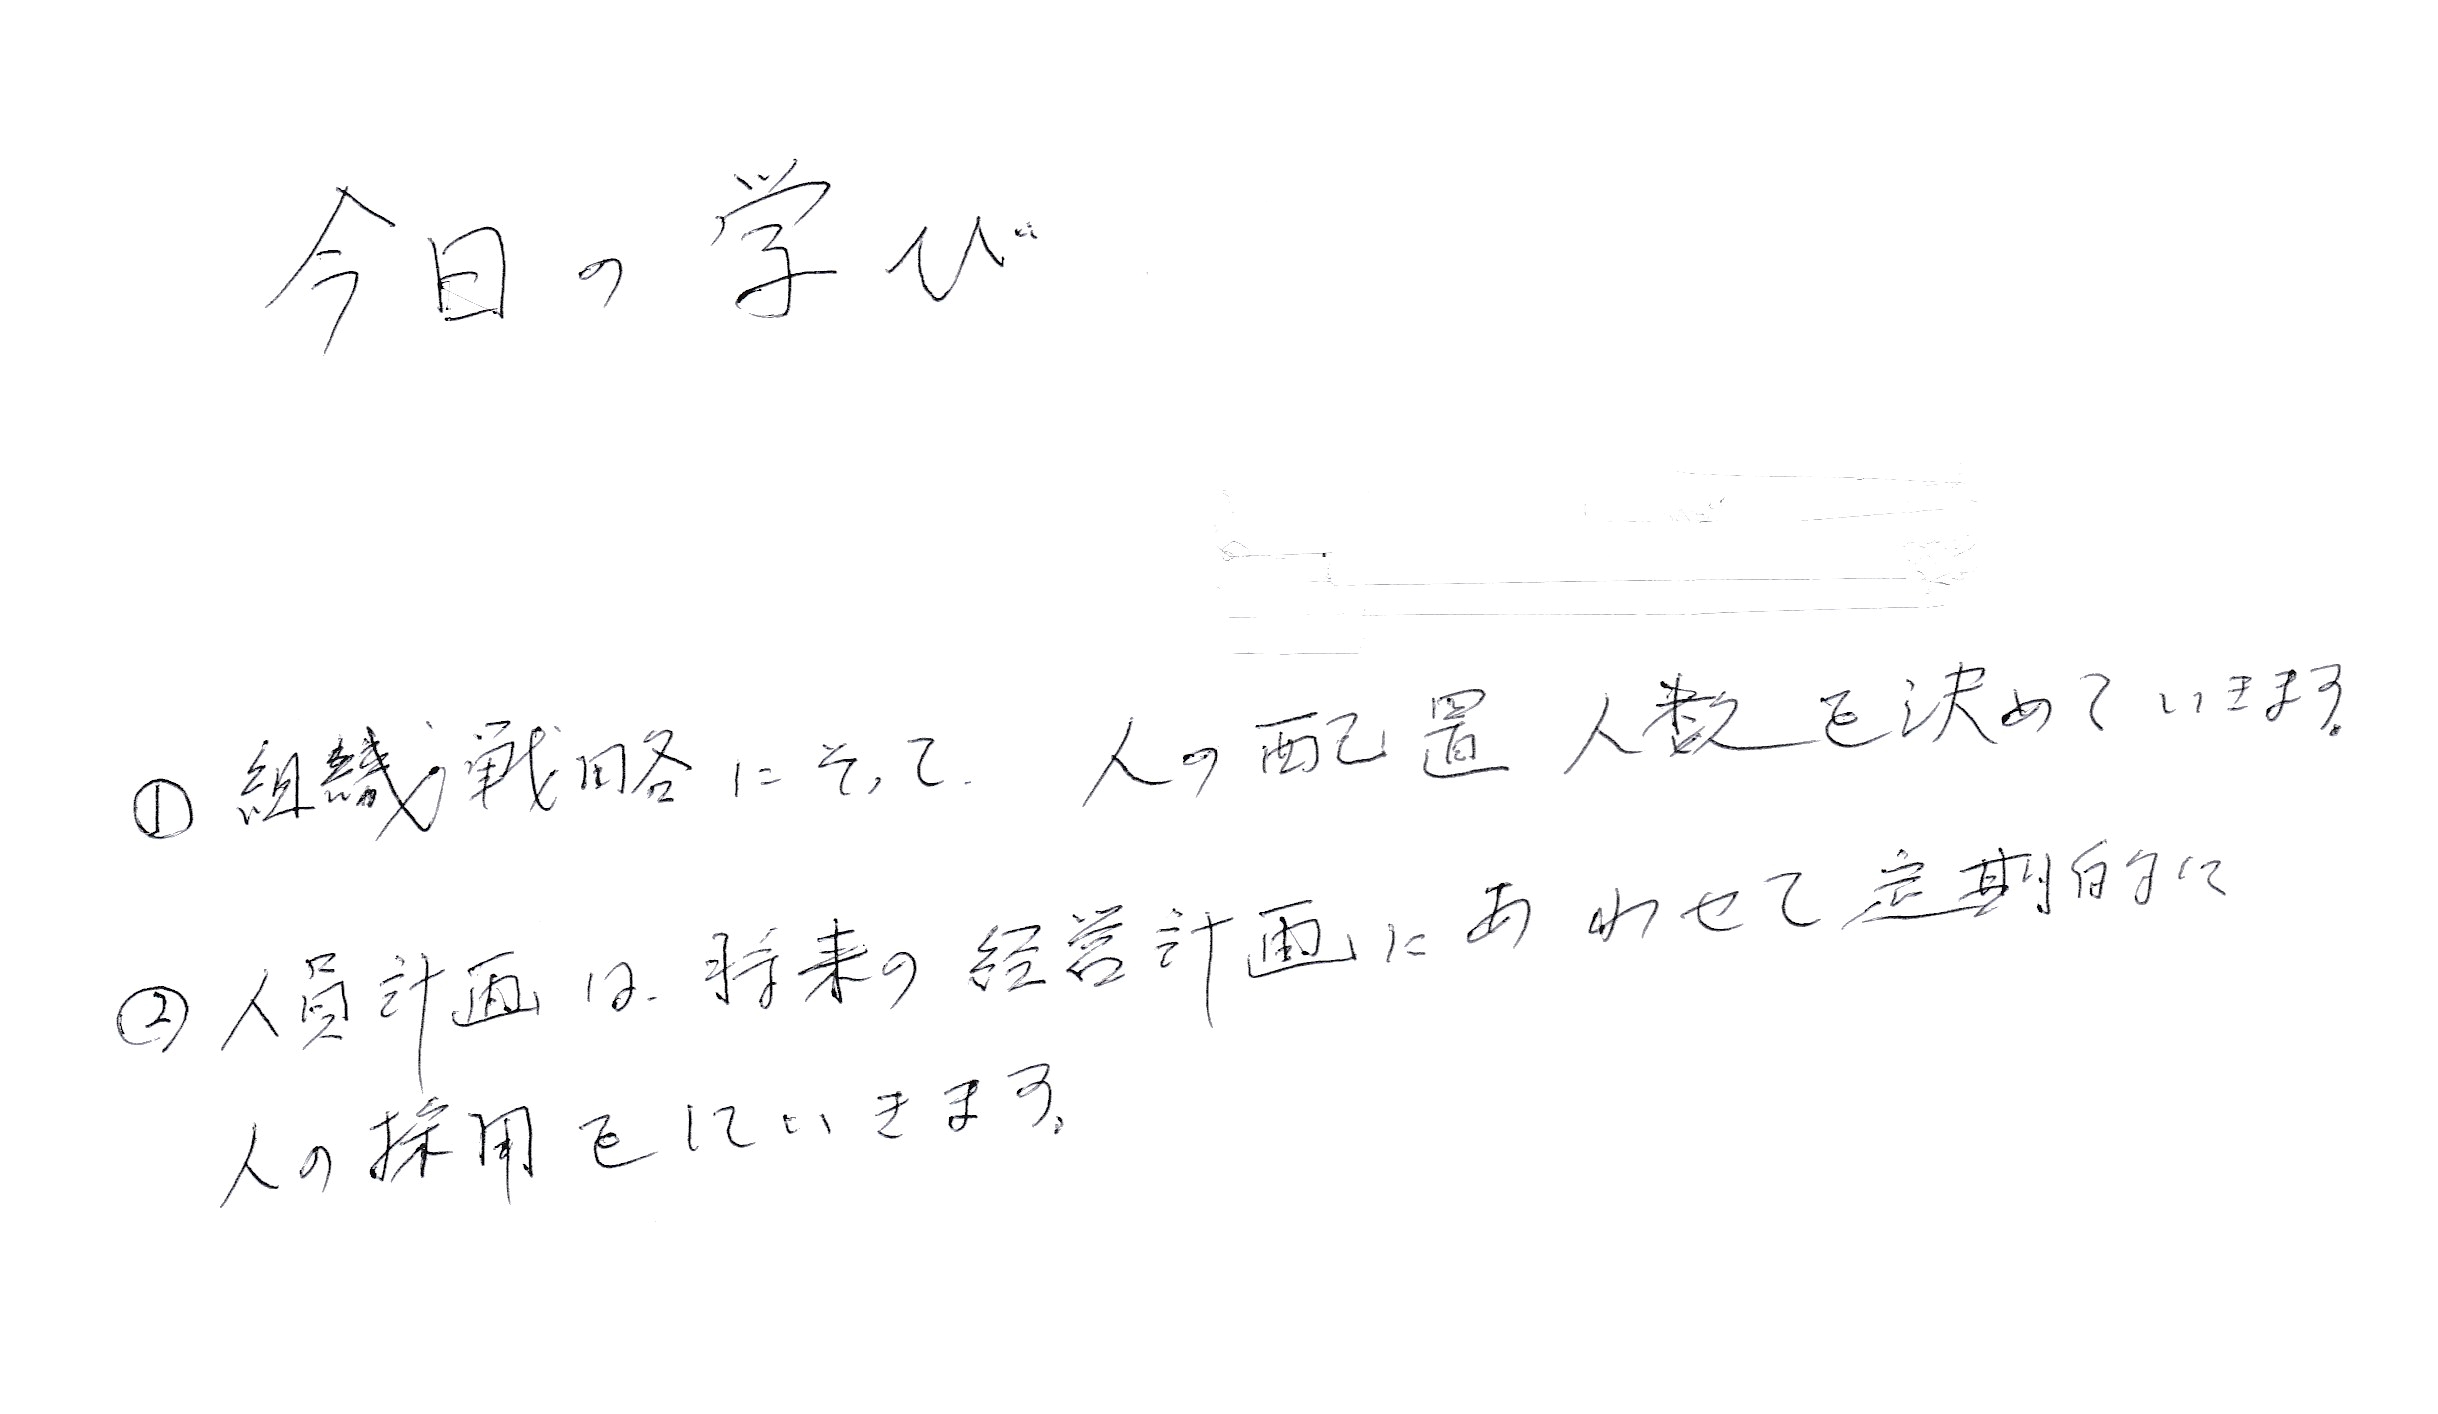 今日の学び
① 組織戦略にそって. 人の配置 人数を決めていきます。
② 人員計画は. 将来の経営計画にあわせて定期的に
人の採用をしていきます。